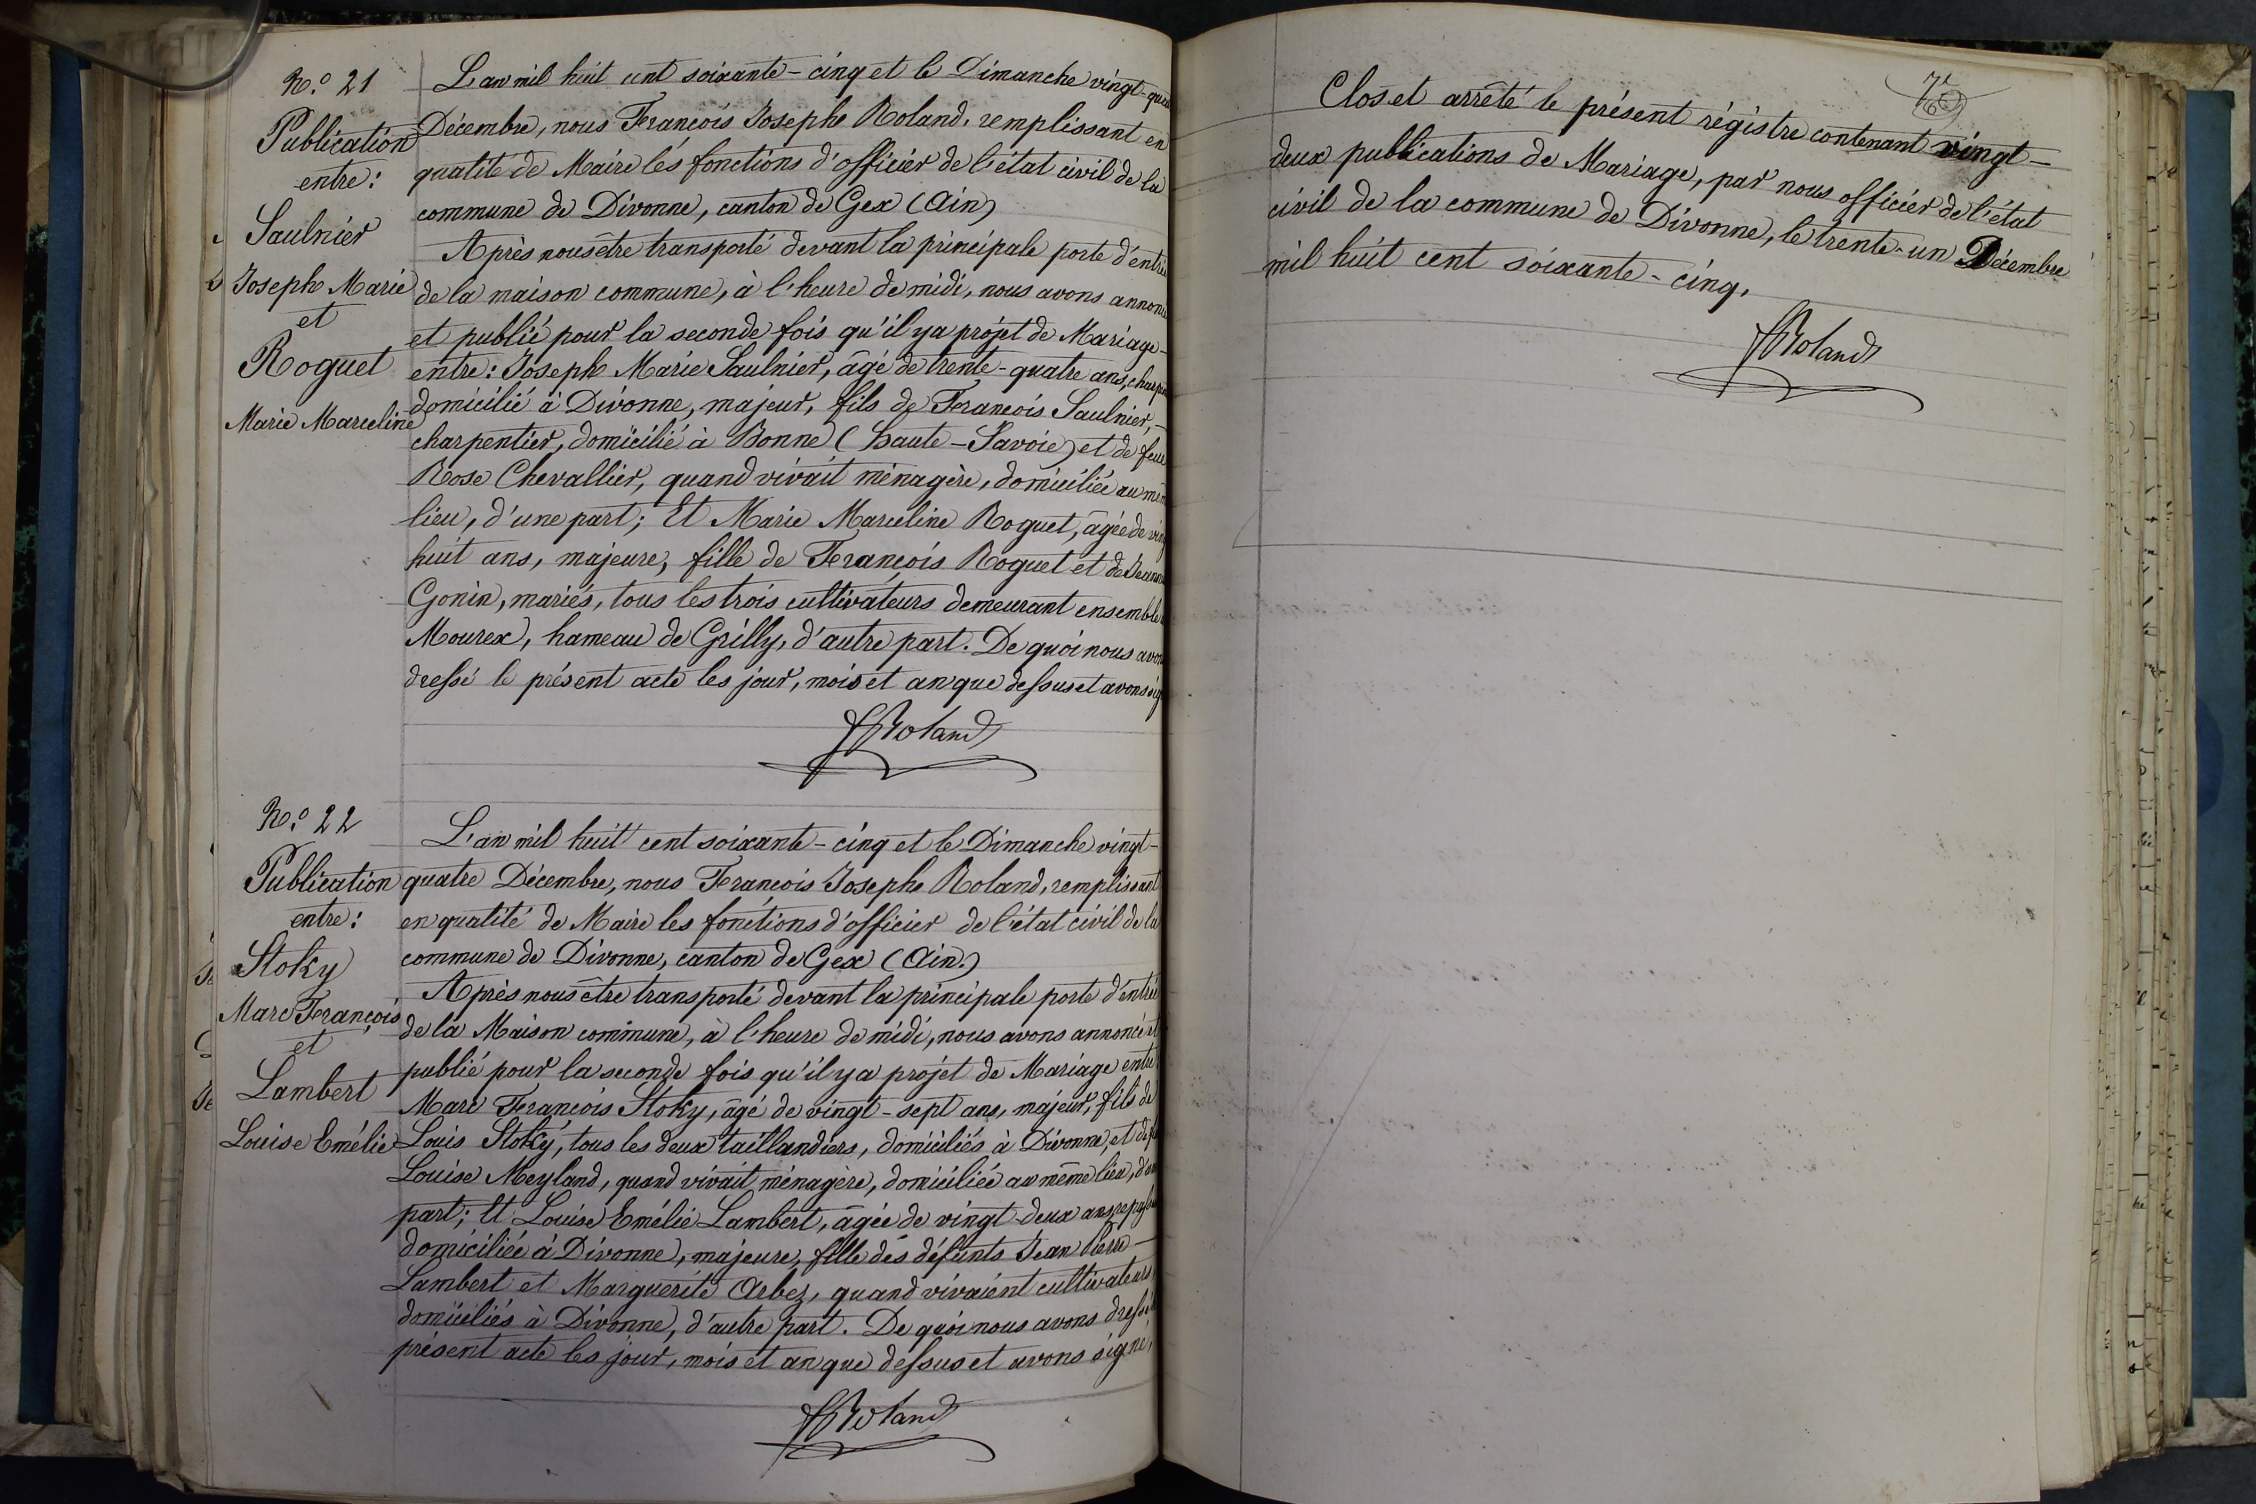 N.º 21
Publication
entre:
Saulnier
Joseph Marie
et
Roguet
Marie Marceline
L'an mil huit cent soixante-cinq et le Dimanche vingt-qua
Décembre, nous François Joseph Roland, remplissant en
qualité de Maire les fonctions d'officier de l'état civil de la
commune de Divonne, canton de Gex (Ain)
Après nous être transporté devant la principale porte d'entrée
de la maison commune, à l'heure de midi, nous avons annoncé
et publié pour la seconde fois qu'il y a projet de Mariage -
entre: Joseph Marie Saulnier, âgé de trente-quatre ans, charpe
domicilié à Divonne, majeur, fils de François Saulnier, -
charpentier, domicilié à Bonne (Haute-Savoie) et de feue
Rose Chevallier, quand vivait ménagère, domiciliée au mêm
lieu, d'une part; Et Marie Marceline Roguet, âgée de ving
huit ans, majeure, fille de François Roguet et de Jeanne
Gonin, mariés, tous les trois cultivateurs demeurant ensemble
Mourex, hameau de Grilly, d'autre part. De quoi nous avon
dressé le présent acte les jour, mois et an que dessus et avons sig
JRoland
N.º 22
Publication
entre:
Stoky
Marc François
et
Lambert
Louise Emélie
L'an mil huit cent soixante-cinq et le Dimanche vingt-
quatre Décembre, nous François Joseph Roland, remplissant
en qualité de Maire les fonctions d'officier de l'état civil de la
commune de Divonne, canton de Gex (Ain.)
Après nous être transporté devant la principale porte d'entrée
de la Maison commune, à l'heure de midi, nous avons annoncé et
publié pour la seconde fois qu'il y a projet de Mariage entre
Marc François Stoky, âgé de vingt-sept ans, majeur, fils de
Louis Stoky, tous les deux taillandiers, domiciliés à Divonne, et de
Louise Meyland, quand vivait ménagère, domiciliée au même lieu, d'u
part; Et Louise Emélie Lambert, âgée de vingt-deux ans, repass
domiciliée à Divonne, majeure, fille des défunts Jean Pierre -
Lambert et Marguerite Arbez, quand vivaient cultivateurs
domiciliés à Divonne, d'autre part. De quoi nous avons dressé
présent acte les jour, mois et an que dessus et avons signé,
JRoland
Clos et arrêté le présent régistre contenant vingt-
deux publications de Mariage, par nous officier de l'état
civil de la commune de Divonne, le trente-un Décembre
mil huit cent soixante-cinq.
JRoland